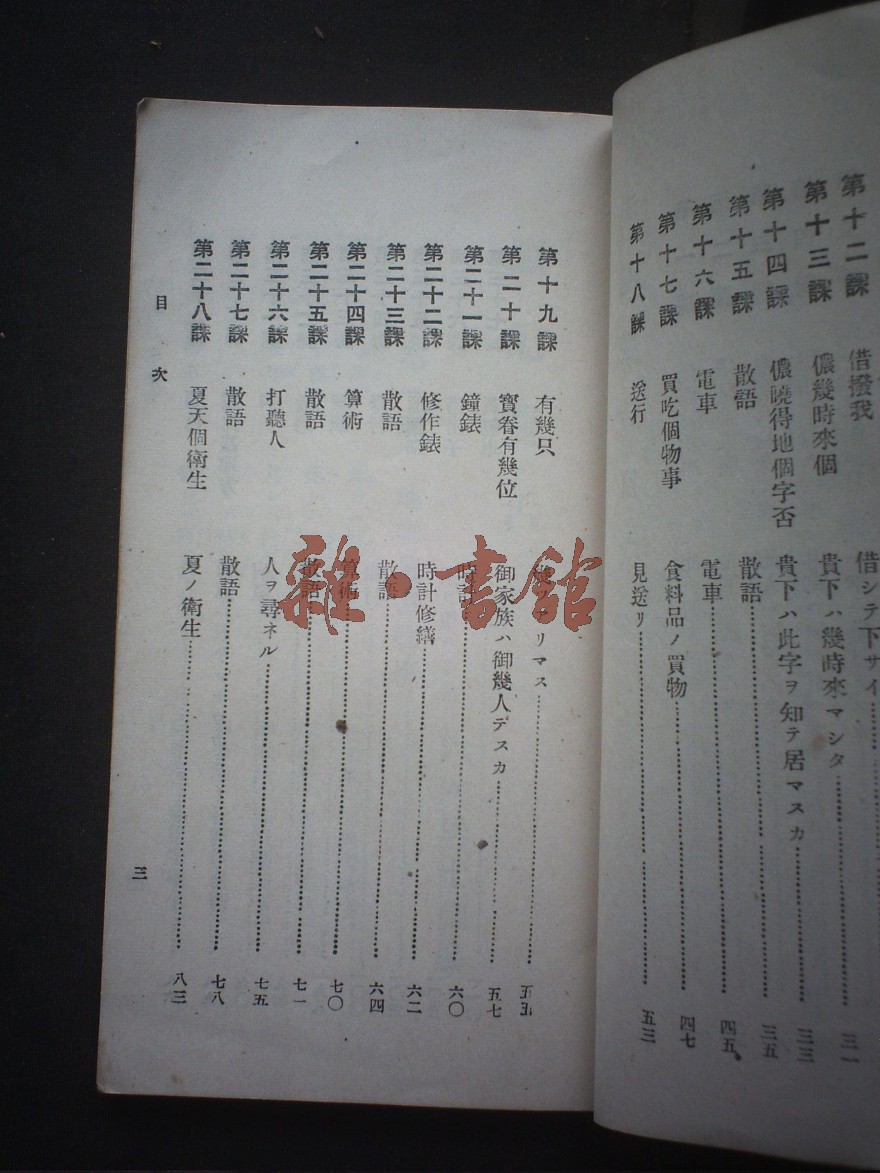 第十二課 借撥我 借シテ下サイ 三一
第十三課 儂幾時來個 貴下ハ幾時來マシタ 三三
第十四課 儂曉得地個字否 貴下ハ此字ヲ知テ居マスカ 三五
第十五課 散語 散語 四五
第十六課 電車 電車
第十七課 買吃個物事 食料品ノ買物 四七
第十八課 送行 見送リ 五三
第十九課 有幾只 リマス 五五
第二十課 寶眷有幾位 御家族ハ御幾人デスカ 五七
第二十一課 鐘錶 時計 六〇
第二十二課 修作錶 時計修繕 六二
第二十三課 散語 散語 六四
第二十四課 算術 算術 七〇
第二十五課 散語 散語 七一
第二十六課 打聽人 人ヲ尋ネル 七五
第二十七課 散語 散語 七八
第二十八課 夏天個衛生 夏ノ衛生 八三
目次
三
雜·書館